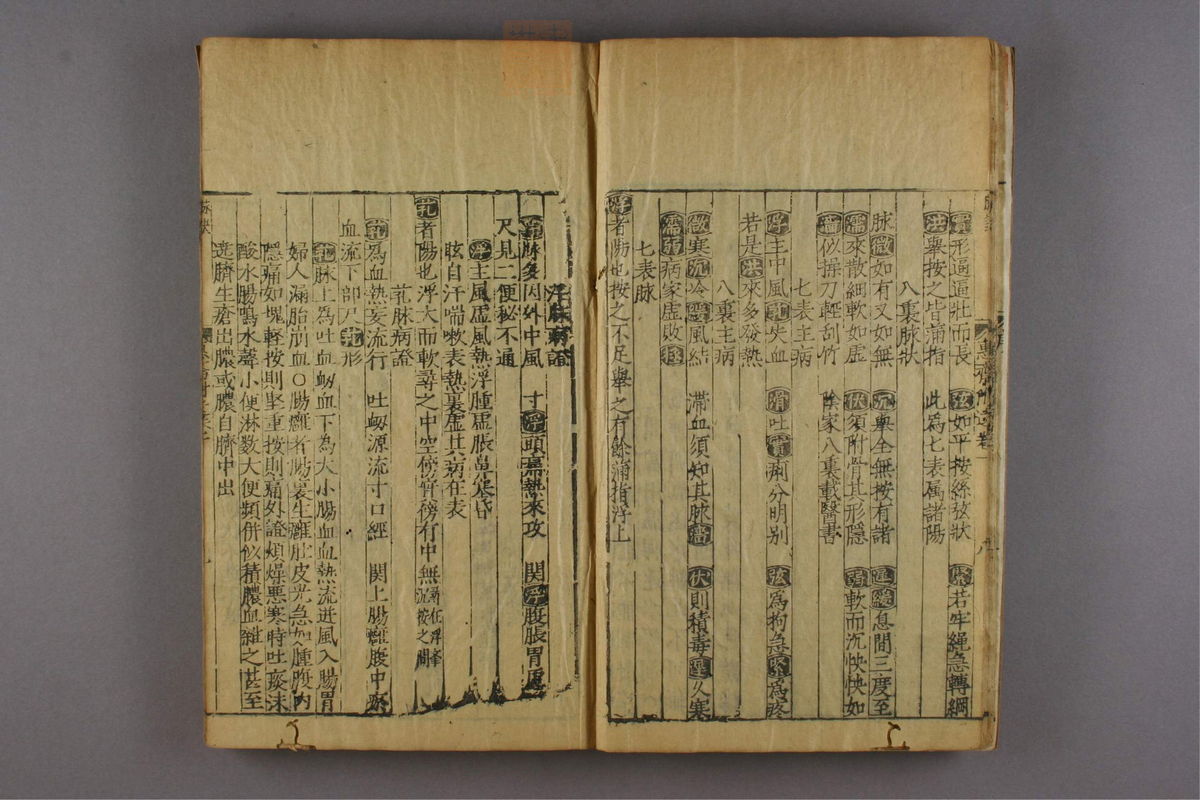 實形逼逼壯而長 弦如平按絲放狀 緊若牢繩急轉綱
洪舉按之皆滿指 此為七表属諸陽
八裏脉狀
脉微如有又如無 沉舉全無按有諸 遲緩息間三度至
濡來散細軟如虛 伏須附骨其形隱 弱軟而沉怏怏如
嗇似操刀輕刮竹 陰家八裏載醫書
七表主病
浮主中風芤失血 滑吐實痢分明別 弦為拘急緊為疼
若是洪來多發熱
八裏主病
微寒沉冷澀風結 滯血須知其脉嗇 伏則積毒遲久寒
濡弱病家虛敗極
七表脉
浮者陽也按之不足舉之有餘滿指浮上
浮脉病證
脉多因外中風 寸浮頭痛熱來攻 関浮腹脹胃虛
尺見二便秘不通
浮主風虛風熱浮腫虛脹鼻塞昏
眩自汗喘嗽表熱裏虛其病在表
芤者陽也浮大而軟尋之中空傍實傍有中無 在浮舉沉按之間
芤脉病證
芤為血熱妄流行 吐衂源流寸口經 関上腸癰腹中瘀
血流下部尺芤形
芤脉上為吐血衂血下為大小腸血血熱流迸風入腸胃
婦人漏胎崩血〇腸癰者腸裏生癰肚皮光急如腫腹内
隱痛如塊輕按則堅重按則痛外證煩燥悪寒時吐痰沫
酸水腸鳴水聲小便淋数大便類併似積膿血雜之甚至
遶臍生瘡出膿或膿自臍中出